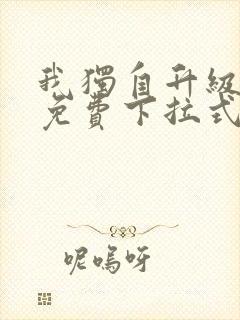 我獨自升級
免費下拉式
呢嗚呀